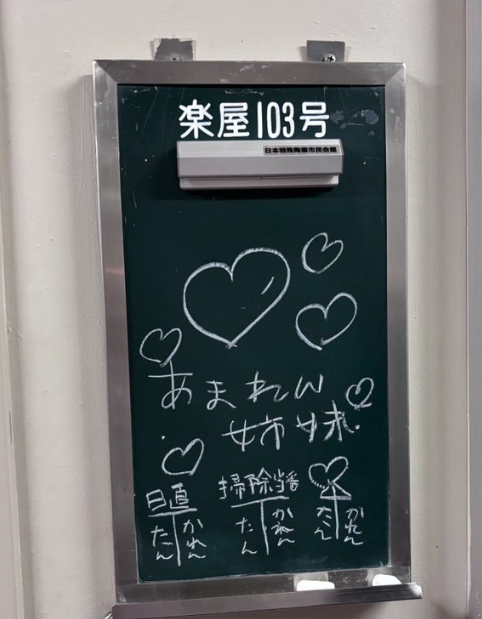 楽屋103号
日本特殊陶業市民会館
あまれん
姉妹
日直
かれん
たん
掃除当番
かれん
たん
かれん
たん